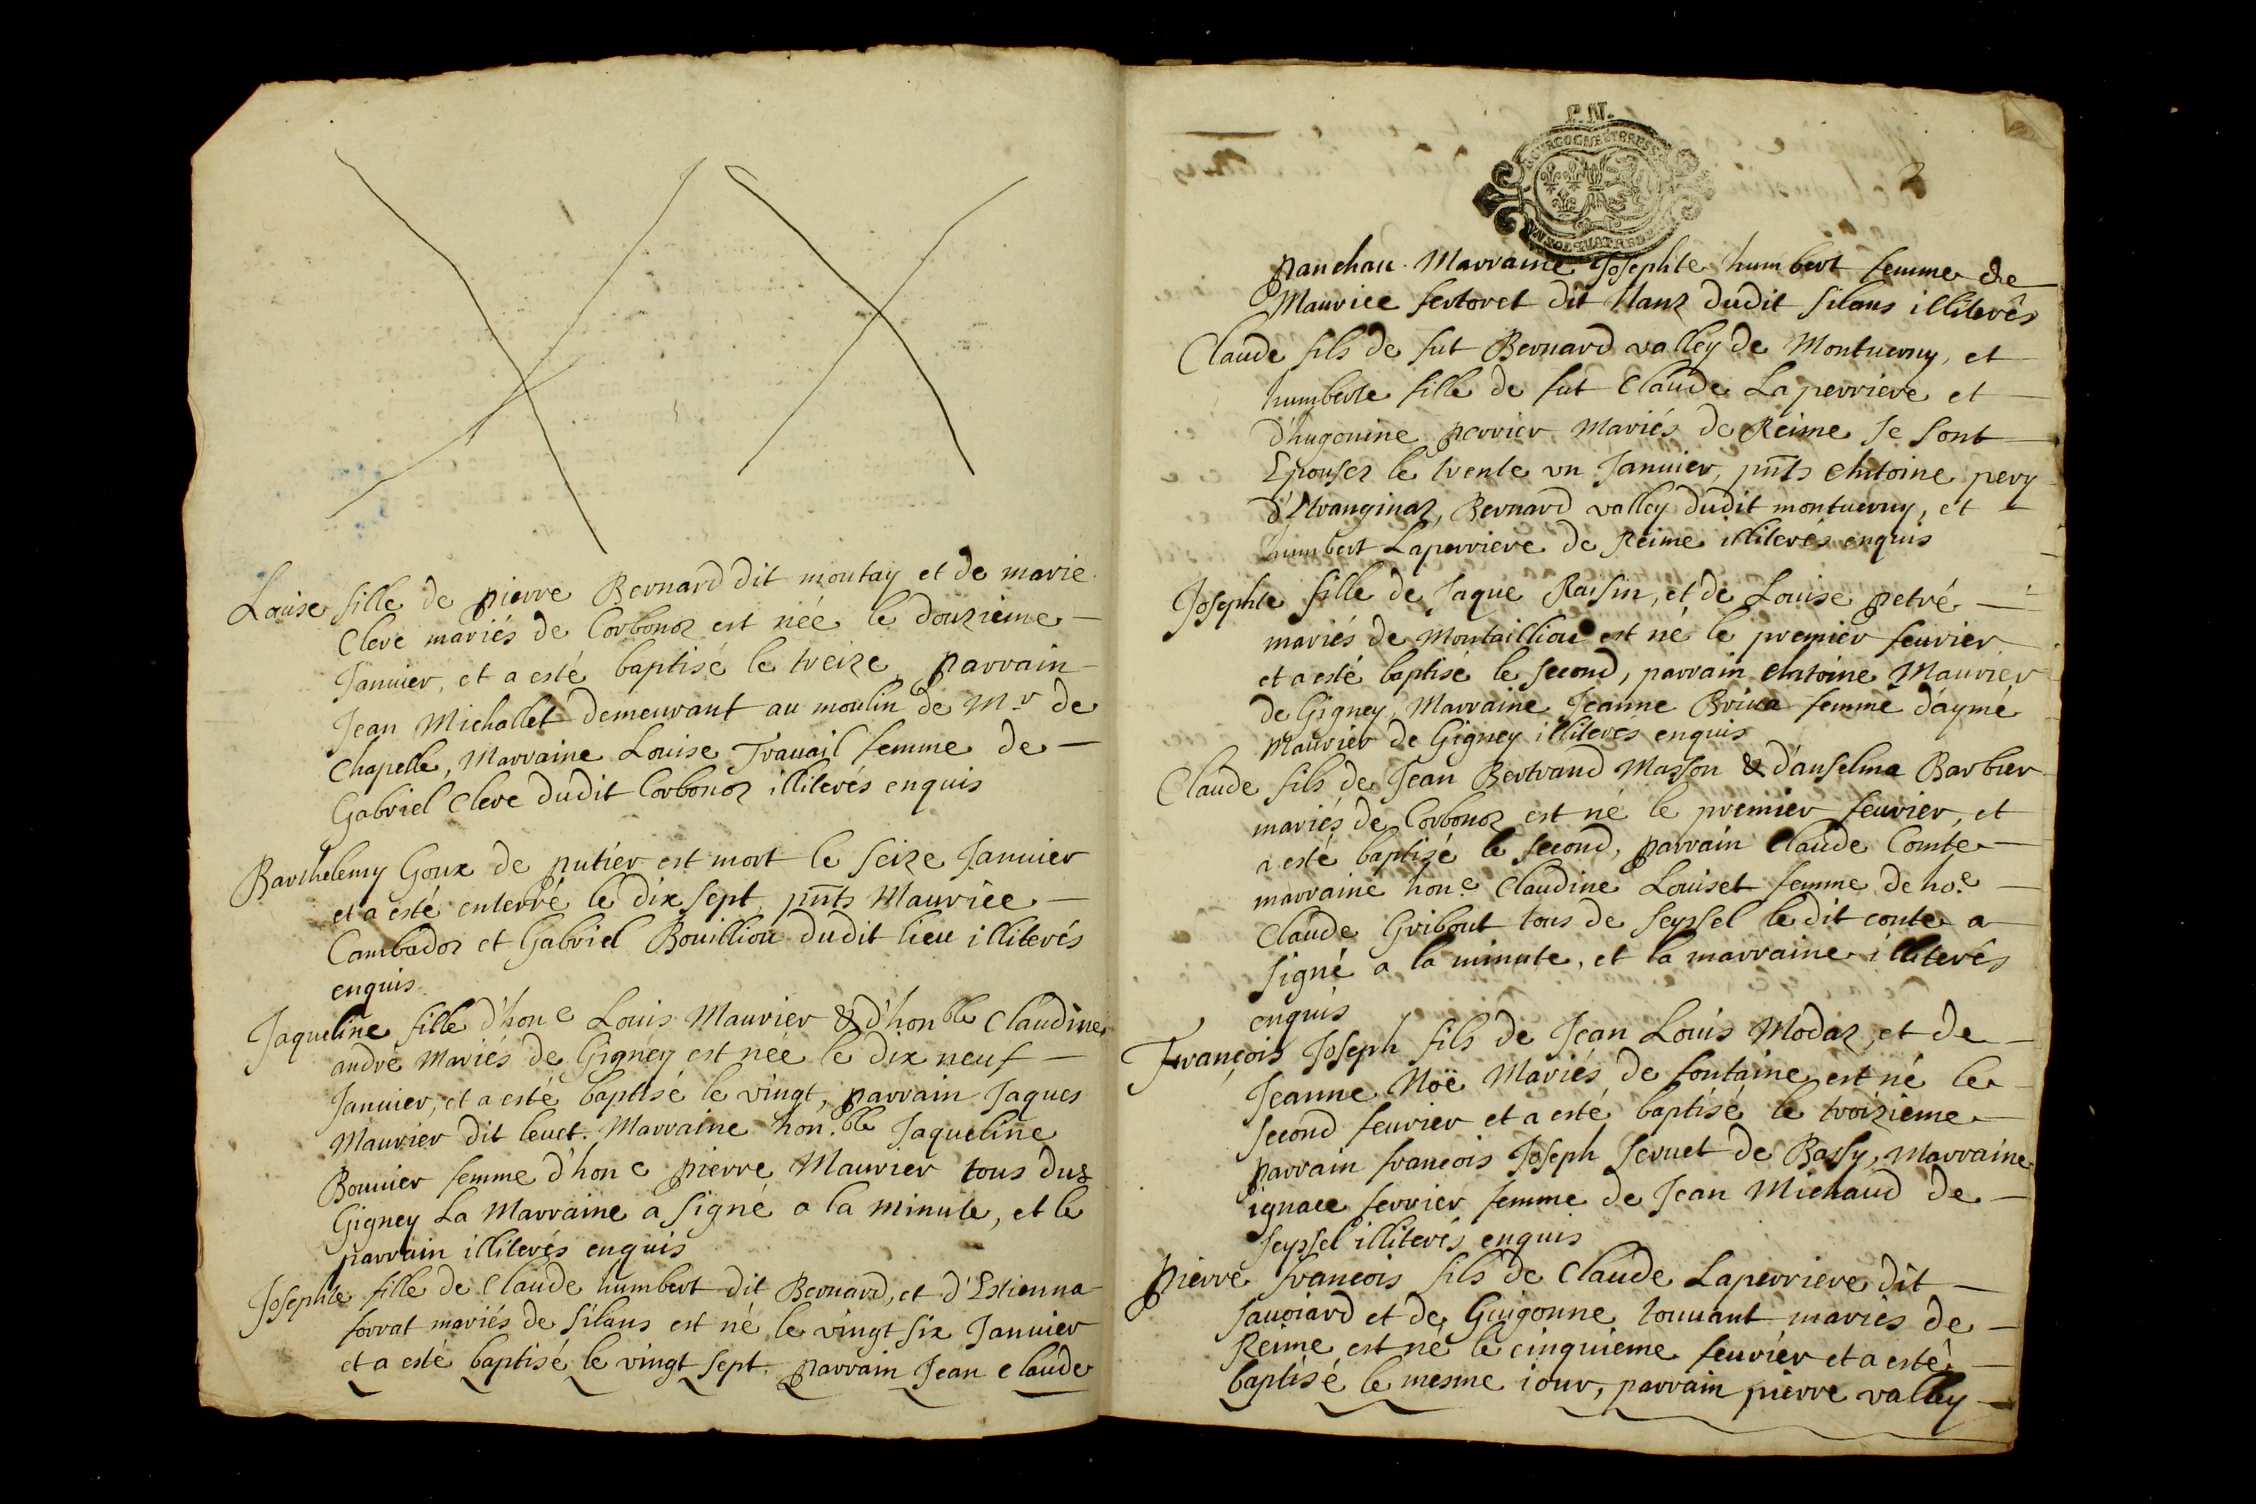 Louise fille de pierre Bernard dit montay et de marie
Clerc mariés de Corbonoz est née le douzieme
Januier, et a esté baptisé le treize, parrain
Jean Michallet demeurant au moulin de Mr de
Chapelle, Marraine Louise Trauail femme de
Gabriel Clerc dudit Corbonoz illiterés enquis
Barthelemy Goux de putier est mort le seize Januier
et a esté enterré le dix sept, pnts Maurice
Cambadoz et Gabriel Bouilliou dudit lieu illiterés
enquis
Jaqueline fille d'hon e Louis Maurier & d'hon ble Claudine
andré Mariés de Gigney est née le dix neuf
Januier, et a esté baptisé le vingt, parrain Jaques
Maurier dit leuet. Marraine hon.ble Jaqueline
Bouuier femme d'hon e pierre Maurier tous dud
Gigney La Marraine a signé a la minute, et le
parrain illiterés enquis
Josephte fille de Claude humbert dit Bernard, et d'Estienna
forrat mariés de silans est né le vingt six Januier
et a esté baptisé le vingt sept. parrain Jean Claude
2
F. N.
BOURGOGNE ET BRESSE
panchau. Marraine Josephte humbert femme de
Maurice fertoret dit dudit silans illiterés
Claude fils de fut Bernard valley de Montuerny, et
humberte fille de fut Claude Laperriere et
d'hugonine perrier Mariés de Reime se sont
Epousez le trente vn Januier, pnts Antoine pery
d'Etranginaz, Bernard valley dudit montuerny, et
humbert Laperriere de Reime illiterés enquis
Josephte fille de Jaque Raisin, et de Louise petré
mariés de Montailliou est né le premier feurier
et a esté baptisé le second, parrain Antoine Maurier
de Gigney, Marraine Jeanne Briua femme d'aymé
Maurier de Gigney illiterés enquis
Claude fils de Jean Bertrand Masson & d'anselma Barbier
mariés de Corbonoz est né le premier feurier, et
a esté baptisé le second, parrain Claude Comte
marraine hon e Claudine Louiset femme de ho.e
Claude Gribout tous de seyssel le dit conte a
signé a la minute, et la marraine illiterés
enquis
François Joseph fils de Jean Louis Modaz, et de
Jeanne Noë Mariés de fontaine est né le
second feurier et a esté baptisé le troizieme
parrain francois Joseph seruet de Bassy, Marraine
ignace ferrier femme de Jean Michaud de
seyssel illiterés enquis
Pierre francois fils de Claude Laperriere dit
sauoiard et de Guigonne touuant mariés de
Reime est né le cinquieme feurier et a esté
baptisé le mesme iour, parrain pierre valley